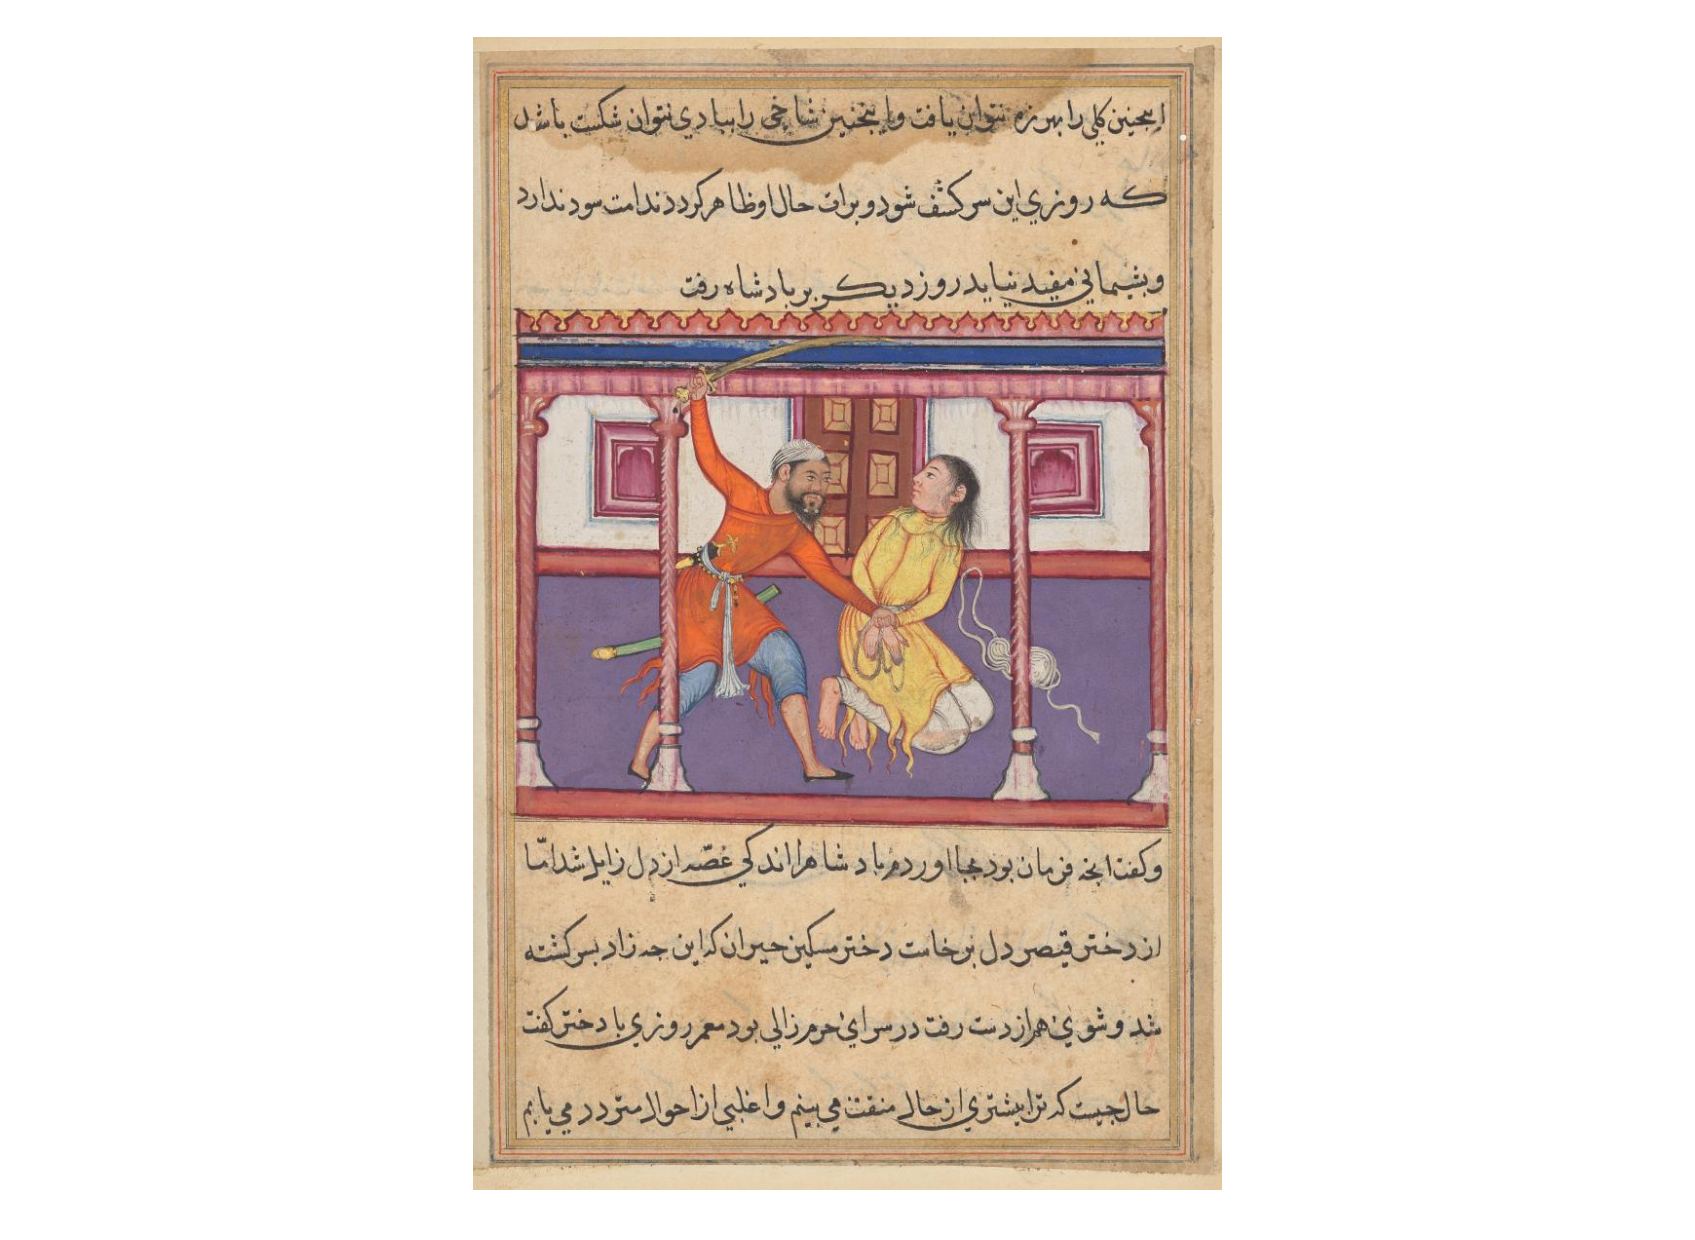 اینچنین کلی را بهرزه نتوان یافت و اینچنین شاخی را ببادی نتوان شکست باشد
که روزی این سر کشف شود و برات حال او ظاهر کردد ندامت سود ندارد
و بشیمانی مفید نیاید روز دیکر بر بادشاه رفت
و کفت انجه فرمان بود بجا اوردم بادشاه را اندکی غصّه از دل زایل شد امّا
از دختر قیصر دل برخاست دختر مسکین حیران که این جه زاد بسر کشته
شد و شوی هم از دست رفت در سرای حرم زالی بود معمر روزی با دختر کفت
حال جیست که ترا بیشتری از حال منقت می بینم و اغلبی از احوال متردد می یابم